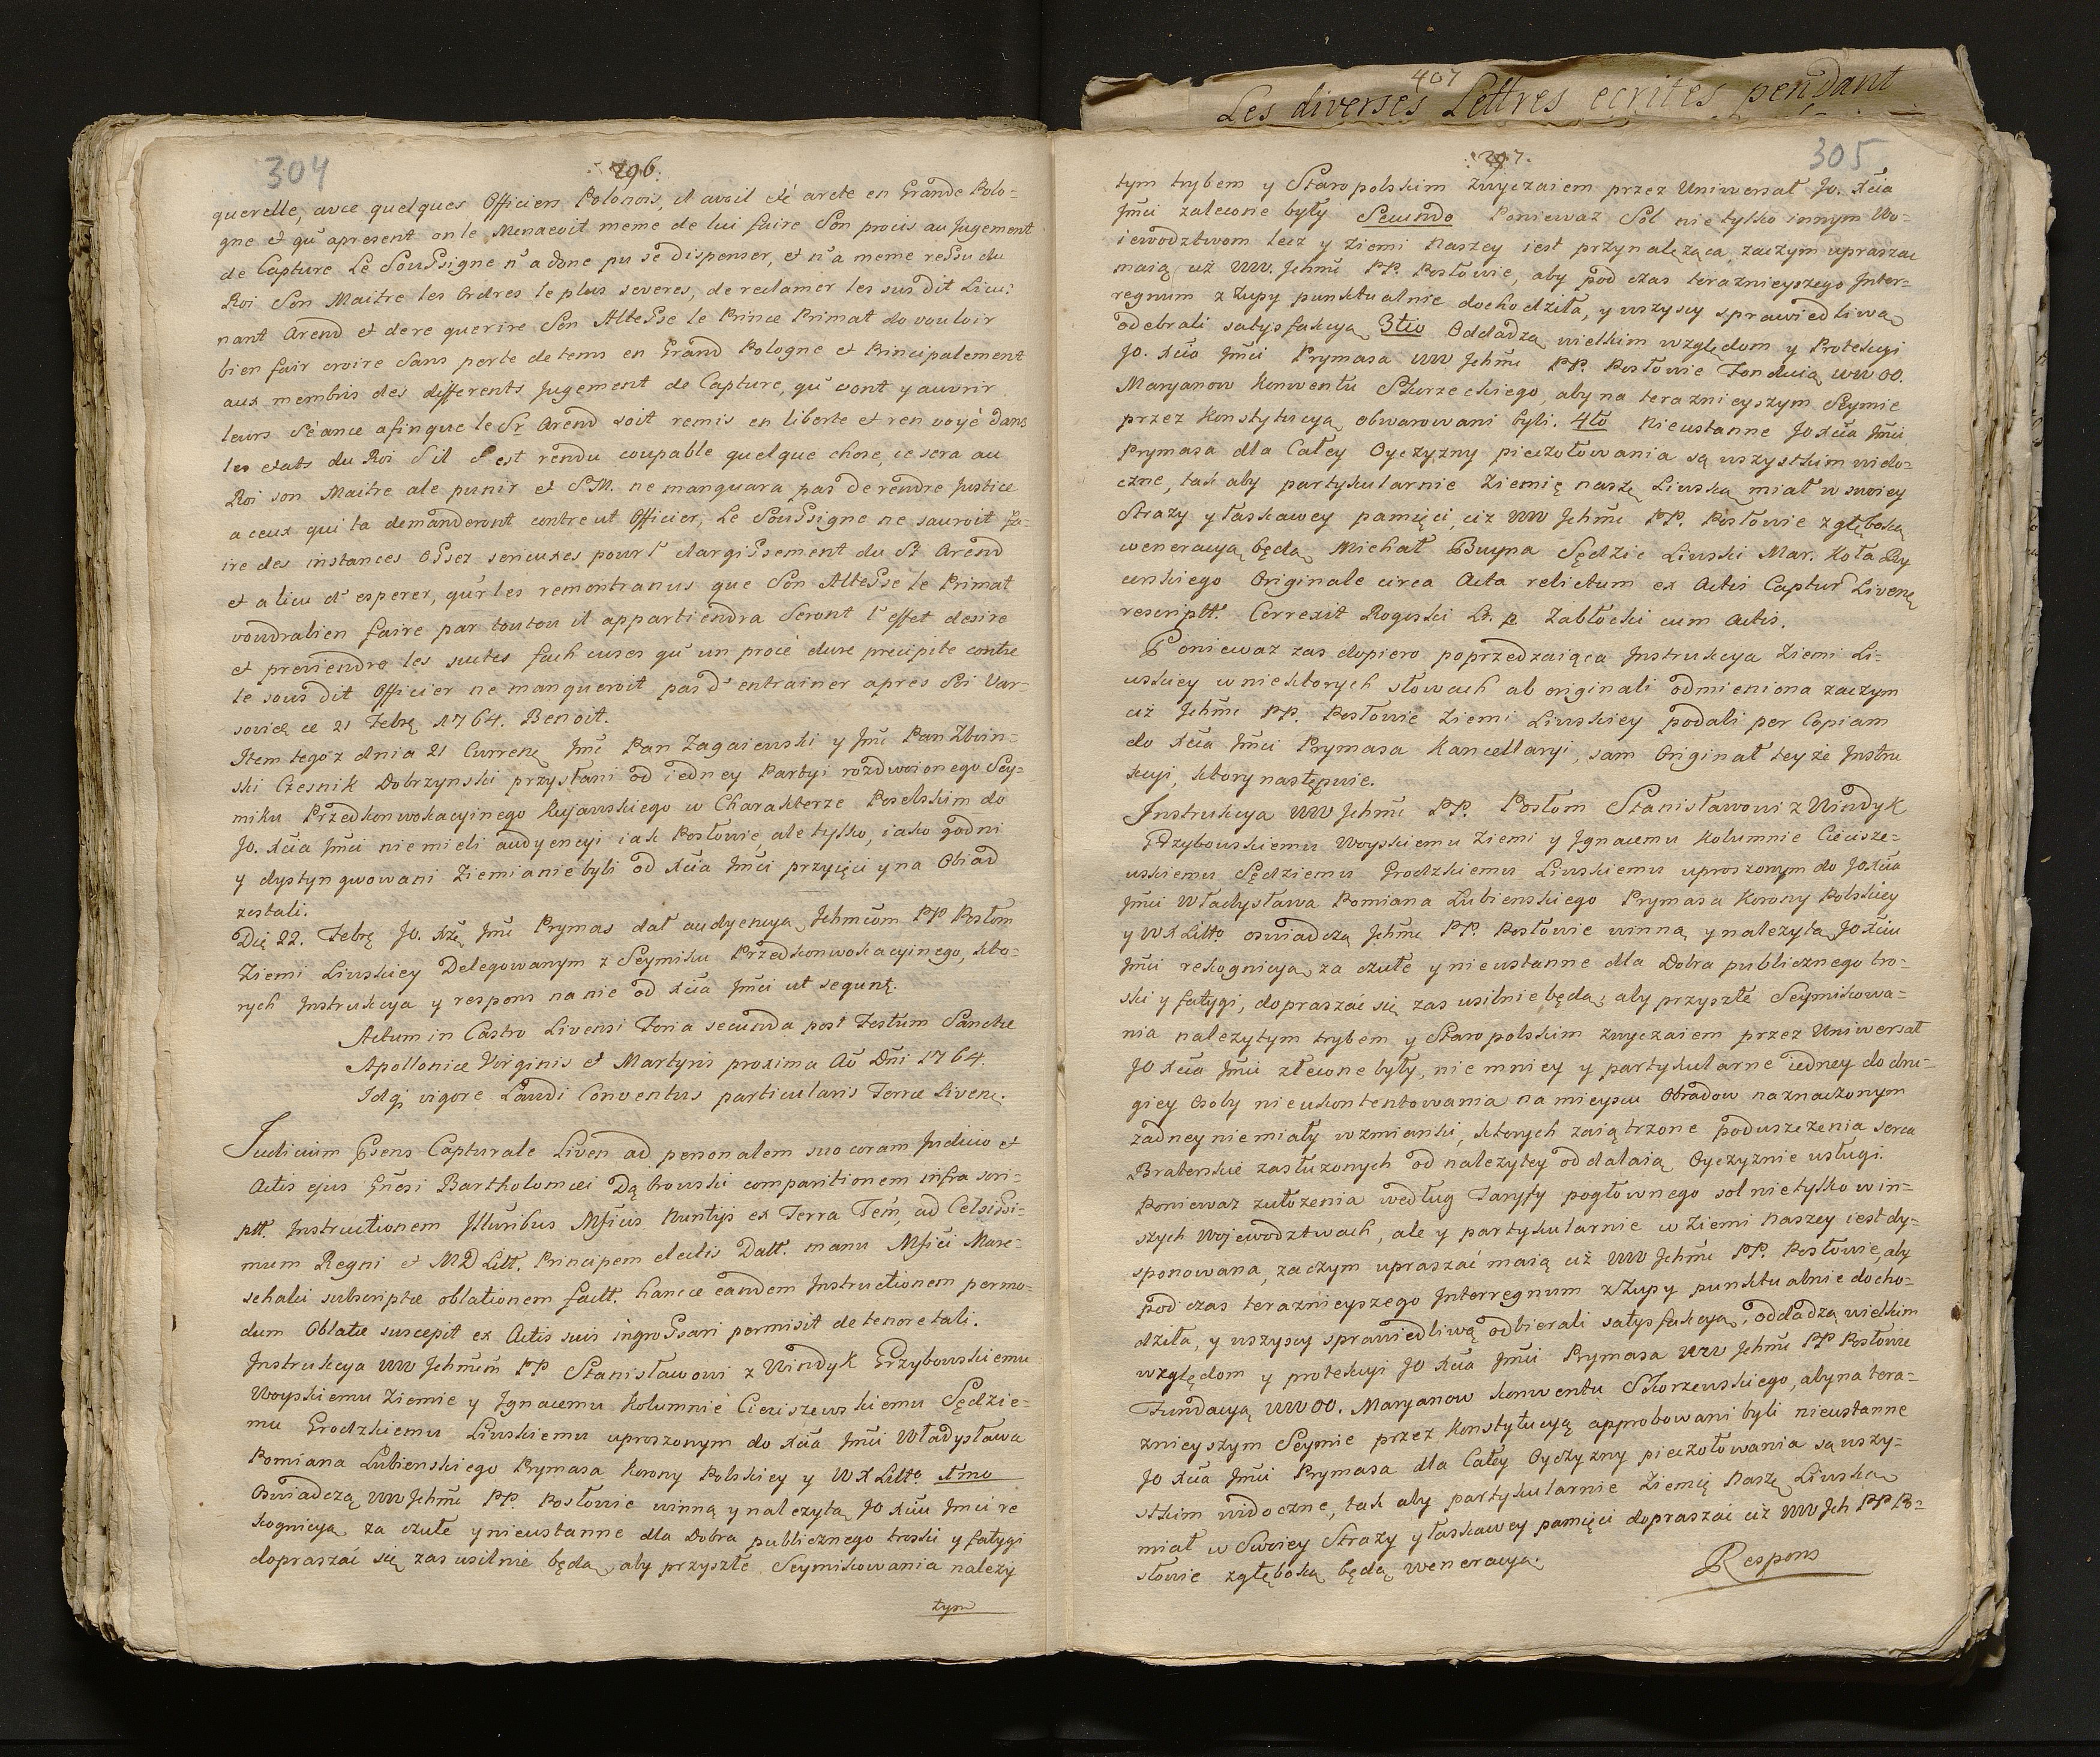 304
296.
querelle, avec quelques Officiers Polonois, il avoit été areté en Grande Polo-
gne et qu'apresent on le Menacoit meme de lui faire Son procis au Jugement
de Capture Le Soussigne n'a donc pu se dispenser, et n'a meme ressu du
Roi Son Maitre les Ordres le plus severes, de reclamer les sus dit Lieu-
nant Arend et de re querire Son Altesse le Prince Primat do vouloir
bien fair croire Sans perte de tems en Grand Pologne et Principalement
aux membris des differents Jugement de Capture, qu'vont y auvrir
leurs Séance afinque le Sr Arend soit remis en liberte et ren voyé dans
les etats du Roi S'il S'est rendu coupable quelque chose, ce sera au
Roi son Maitre ale punir et S.M. ne manquara pas de rendre Justice
a ceux qui la demanderont contre ut Officier, Le Soussigne ne sauroit fa-
ire des instances assez serieuxes pour l'elargissement du Sr Arend
et a lieu d'esperer, qu'r les remontranus que Son Altesse le Primat
voudra bien faire par toutou il appartiendra Seront l'effet desire
et previendre les suetes fach euses qu'un procé dure precipite contre
le sous dit Officier ne manqueroit pas d'entrainer apres Soi Var-
sovie ce 21 Febrę 1764. Benoit.
Item tegoż dnia 21 Currenę Jmć Pan Zagaiewski y Jmć Pan Zboin-
ski Czesnik Dobrzynski przysłani od iedney Partyi rozdwoionego Sey-
miku Przedkonwokacyinego Kujawskiego w Charakterze Poselskim do
Jo. Xcia Jmci niemieli audyencyi iak Posłowie, ale tylko, iako godni
y dystyngwowani Ziemianie byli od Xcia Jmci przyięci y na Obiad
zostali.
Die 22. Febrę Jo. Xżę Jmć Prymas dał audyencyą Jchmcom PP Posłom
Ziemi Liwskiey Delegowanym z Seymiku Przedkonwokacyinego, kto-
rych Instrukcya y respons na nie od Xcia Jmci ut sequnt.
Actum in Castro Livensi Feria secunda post Festum Sanctæ
Apolloniæ Virginis et Martyris proxima Aō Dni 1764.
Idqj vigore Laudi Conventus particularis Terræ Livenę.
Judicium Psens Capturale Liven ad personalem suo coram Judicio et
Actis ejus Gnesi Bartholomæi Dąbrowski comparitionem infra scri-
ptt. Instructionem Illuribus Mficis Nuntijs ex Terra Tem, ad Celsissi-
mum Regni et MD Litt. Principem electis Datt. manu Mfici Mare-
schalci subscriptæ oblationem factt. hancce eandem Instructionem permo-
dum Oblatæ suscepit ex Actis suis ingrossari permisit de tenore tali.
Instrukcya WW Jchmcm PP Stanisławowi z Windyk Grzybowskiemu
Woyskiemu Ziemie y Jgnacemu Kolumnie Cieciszewskiemu Sędzie-
mu Grodzkiemu Liwskiemu uproszonym do Xcia Jmci Władysława
Pomiana Lubienskiego Prymasa Korony Polskiey y WX Litto. 1mo
Oswiadczą WW Jchmć PP. Posłowie winną y nalezytą JO Xciu Jmci re
kognicyą za czułe y nieustanne dla Dobra publicznego troski y fatygi
dopraszać się zas usilnie będą, aby przyszłe Seymikowania nalezy
tym
407
Les diverses Lettres ecrites pendant
297.
305
tym trybem y Staropolskim Zwyczaiem przez Uniwersał Jo. Xcia
Jmci zalecone były Secundo Poniewaz Sol nie tylko innym Wo-
iewodztwom lecz y ziemi Naszey iest przynależąca, zaczym upraszac
maią ciż WW. Jchmć PP. Posłowie, aby pod czas teraznieyszego Inter-
regnum z Zupy punktualnie dochodziła, y wszyscy sprawiedliwą
odebrali satysfakcyą 3tio Oddadzą wielkim względom y Protekcyi
Jo. Xcia Jmci Prymasa WW Jchmć PP. Posłowie Fonducią WW OO.
Maryanow Konwentu Skorzeckiego, aby na teraznieyszym Seymie
przez Konstytucyą obwarowani byli. 4to Nieustanne JOXcia Jmci
Prymasa dla Całey Oyczyzny pieczołowania są wszystkim wido-
czne, tak aby partykularnie Ziemię naszę Liwską miał w swoiey
Strazy y łaskawey pamięci, ciz WW Jchmć PP. Posłowie z głęboką
weneracyą będą Michał Buyna Sędzie Liwski Mar. Koła Ry
cerskiego Originale circa Acta relictum ex Actis Captur Livenę
rescriptt. Correxit Roguski Lt. p Zabłocki cum Actis.
Poniewaz zas dopiero poprzedzaiąca Instrukcya Ziemi Li-
wskiey w niektorych słowach ab originali odmieniona zaczym
ciż Jchmć PP. Posłowie Ziemi Liwskiey podali per Copiam
do Xcia Jmci Prymasa Kancellaryi, sam Originał teyże Instru
kcyi, ktory następuie.
Instrukcya WW Jchmć PP. Posłom Stanisławowi z Windyk
Grzybowskiemu Woyskiemu Ziemi y Jgnacemu Kolumnie Ciecisze-
wskiemu Sędziemu Grodzkiemu Liwskiemu uproszonym do JOXcia
Jmci Władysława Pomiana Lubienskiego Prymasa Korony Polskiey
y WX Litto. oswiadczą Jchmć PP. Posłowie winną y nalezytą JOXciu
Jmci rekognicyą za czułe y nieustanne dla Dobra publicznego tro-
ski y fatygi, dopraszać się zas usilnie będą, aby przyszłe Seymikowa-
nia nalezytym trybem y Staropolskim zwyczaiem przez Uniwersał
JO Xcia Jmci zlecone były, nie mniey y partykularne iedney do dru-
giey Osoby nieukontentowania na mieyscu Obradow naznaczonym
żadney niemiały wzmianki, ktorych zaiątrzone poduszczenia serca
Braterskie zasłuzonych od nalezytey oddalaią Oyczyznie usługi.
Poniewaz zułozenia według Taryfy pogłownego sol nietylko w in-
szych Wojewodztwach, ale y partykularnie w Ziemi Naszey iest dy-
sponowana, zaczym upraszać maią ciż WW Jchmć PP. Posłowie, aby
pod czas teraznieyszego Interregnum z Zupy punktualnie docho-
dziła, y wszyscy sprawiedliwą odbierali satysfakcyą, oddadzą wielkim
względom y protekcyi JO Xcia Jmci Prymasa WW Jchmć PP Posłowie
Fundacyą WW OO. Maryanow konwentu Skorzewskiego, aby na tera-
znieyszym Seymie przez Konstytucyą approbowani byli nieustanne
JO Xcia Jmci Prymasa dla Całey Oyczyzny pieczołowania są wszy-
stkim widoczne, tak aby partykularnie Ziemię Naszę Liwską
miał w Swoiey Strazy y łaskawey pamięci dopraszać ciż WW Jch PP Po-
słowie zgłęboką będą weneracyą.
Respons